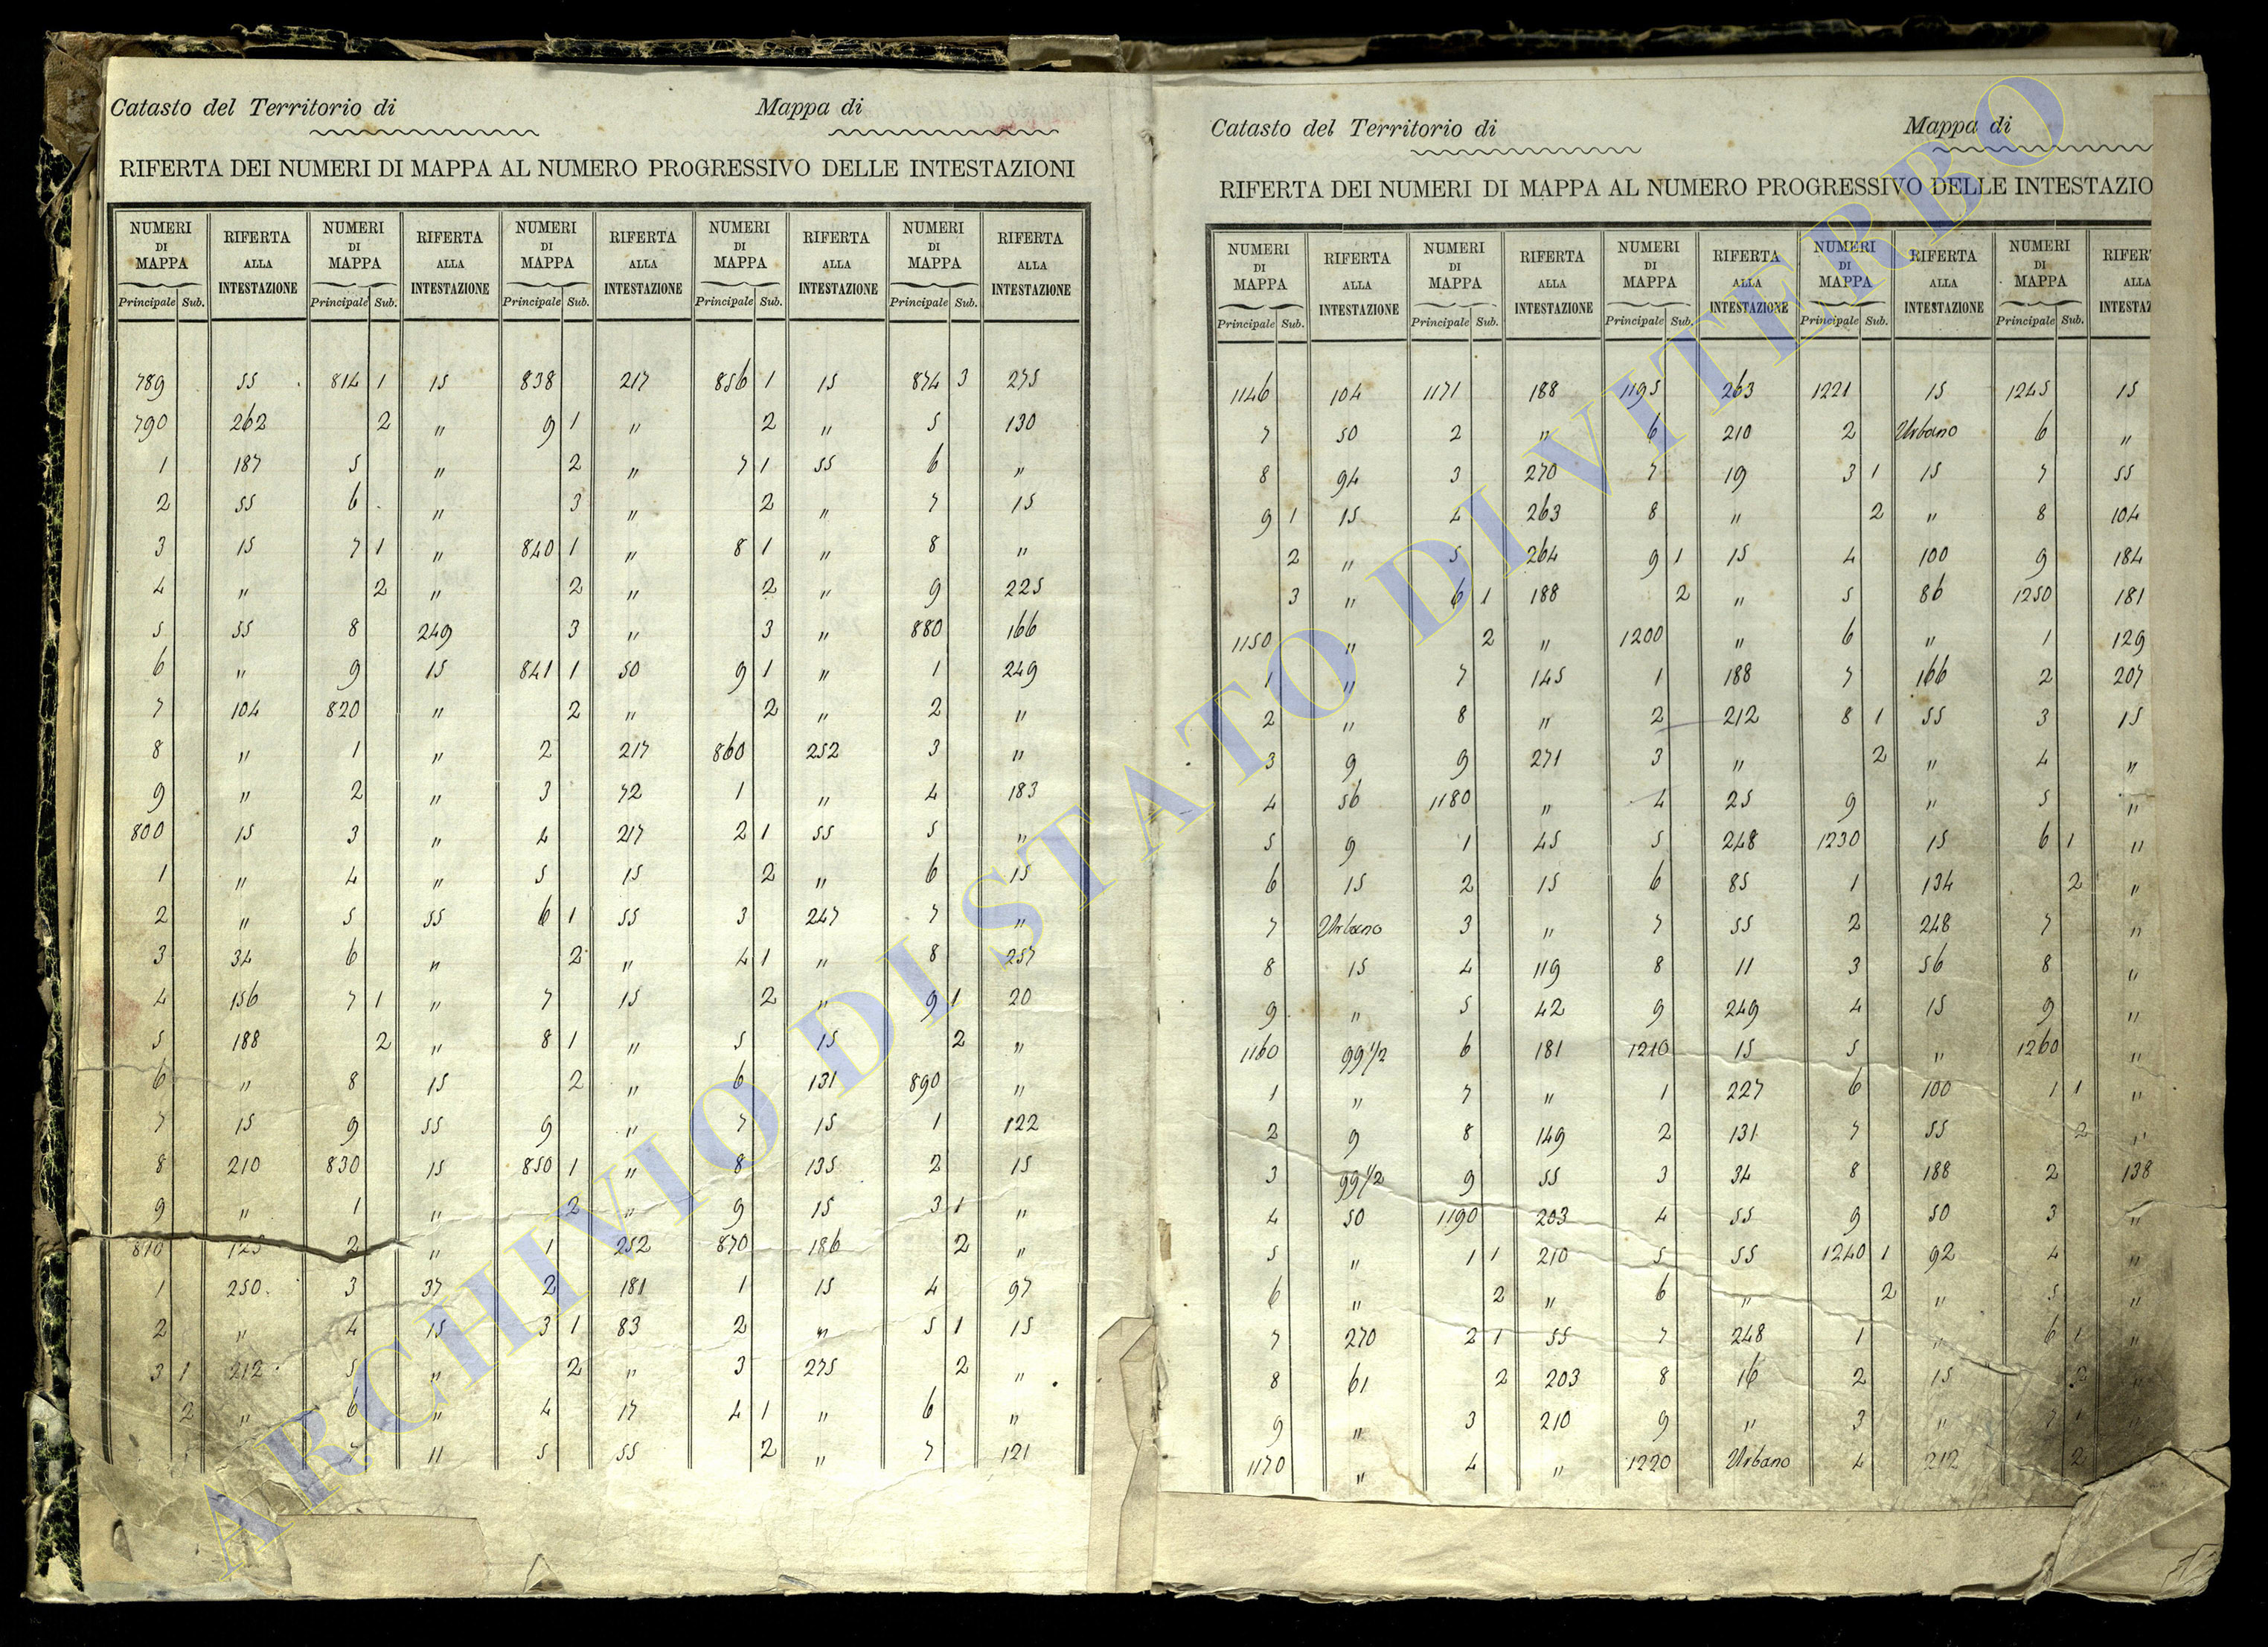 Catasto del Territorio di Mappa di
RIFERTA DEI NUMERI DI MAPPA AL NUMERO PROGRESSIVO DELLE INTESTAZIONI
NUMERI DI MAPPA RIFERTA ALLA INTESTAZIONE NUMERI DI MAPPA RIFERTA ALLA INTESTAZIONE NUMERI DI MAPPA RIFERTA ALLA INTESTAZIONE NUMERI DI MAPPA RIFERTA ALLA INTESTAZIONE NUMERI DI MAPPA RIFERTA ALLA INTESTAZIONE
Principale Sub. Principale Sub. Principale Sub. Principale Sub. Principale Sub.
789 55 814 1 15 838 217 856 1 15 874 3 275
790 262 2 " 9 1 " 2 " 5 130
1 187 5 " 2 " 7 1 55 6 "
2 55 6 " 3 " 2 " 7 15
3 15 7 1 " 840 1 " 8 1 " 8 "
4 " 2 " 2 " 2 " 9 225
5 55 8 249 3 " 3 " 880 166
6 " 9 15 841 1 50 9 1 " 1 249
7 104 820 " 2 " 2 " 2 "
8 " 1 " 2 217 860 252 3 "
9 " 2 " 3 72 1 " 4 183
800 15 3 " 4 217 2 1 55 5 "
1 " 4 " 5 15 2 " 6 15
2 " 5 55 6 1 55 3 247 7 "
3 34 6 " 2 " 4 1 " 8 257
4 156 7 1 " 7 15 2 " 9 1 20
5 188 2 " 8 1 " 5 15 2 "
6 " 8 15 2 " 6 131 890 "
7 15 9 55 9 " 7 15 1 122
8 210 830 15 850 1 " 8 135 2 15
9 " 1 " 2 " 9 15 3 1 "
810 125 2 " 1 252 870 186 2 "
1 250 3 37 2 181 1 15 4 97
2 " 4 15 3 1 83 2 " 5 1 15
3 1 212 5 " 2 " 3 275 2 "
2 " 6 " 4 17 4 1 " 6 "
7 11 5 55 2 " 7 121
Catasto del Territorio di Mappa di
RIFERTA DEI NUMERI DI MAPPA AL NUMERO PROGRESSIVO DELLE INTESTAZIO
NUMERI DI MAPPA RIFERTA ALLA INTESTAZIONE NUMERI DI MAPPA RIFERTA ALLA INTESTAZIONE NUMERI DI MAPPA RIFERTA ALLA INTESTAZIONE NUMERI DI MAPPA RIFERTA ALLA INTESTAZIONE NUMERI DI MAPPA RIFERT ALLA INTESTAZ
Principale Sub. Principale Sub. Principale Sub. Principale Sub. Principale Sub.
1146 104 1171 188 1195 263 1221 15 1245 15
7 50 2 " 6 210 2 Urbano 6 "
8 94 3 270 7 19 3 1 15 7 55
9 1 15 4 263 8 " 2 " 8 104
2 " 5 264 9 1 15 4 100 9 184
3 " 6 1 188 2 " 5 86 1250 181
1150 " 2 " 1200 " 6 " 1 129
1 " 7 145 1 188 7 166 2 207
2 " 8 " 2 212 8 1 55 3 15
3 9 9 271 3 " 2 " 4 "
4 56 1180 " 4 25 9 " 5 "
5 9 1 45 5 248 1230 15 6 1 "
6 15 2 15 6 85 1 134 2 "
7 Urbano 3 " 7 55 2 248 7 "
8 15 4 119 8 11 3 56 8 "
9 " 5 42 9 249 4 15 9 "
1160 99 1/2 6 181 1210 15 5 " 1260 "
1 " 7 " 1 227 6 100 1 1 "
2 9 8 149 2 131 7 55 2 "
3 99 1/2 9 55 3 34 8 188 2 138
4 50 1190 203 4 55 9 50 3 "
5 " 1 1 210 5 55 1240 1 92 4 "
6 " 2 " 6 " 2 " 5 "
7 270 2 1 55 7 248 1 " 6 1 "
8 61 2 203 8 16 2 15 2 "
9 " 3 210 9 " 3 " 7 1 "
1170 " 4 " 1220 Urbano 4 212 2
ARCHIVIO DI STATO DI VITERBO